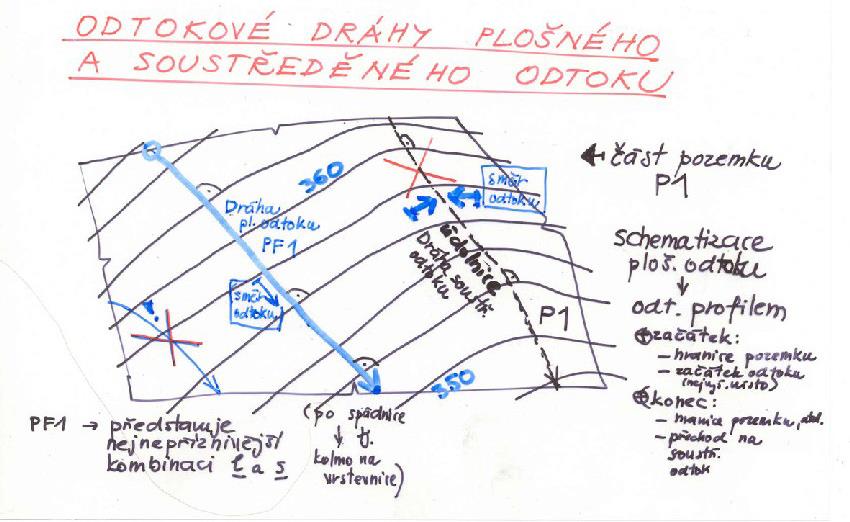 ODTOKOVÉ DRÁHY PLOŠNÉHO
A SOUSTŘEDĚNÉHO ODTOKU
360
Dráha
pl. odtoku
PF1
směr
odtoku
směr
odtoku
údolnice
Dráha soustř.
odtoku
P1
350
část pozemku
P1
schematizace
ploš. odtoku
odt. profilem
začátek:
– hranice pozemku
– začátek odtoku
(nejvyš. místo)
konec:
– hranice pozemku,
– přechod na
soustř.
odtok
PF1 → představuje
nejnepříznivější
kombinaci l a s
(po spádnice
tj.
kolmo na
vrstevnice)